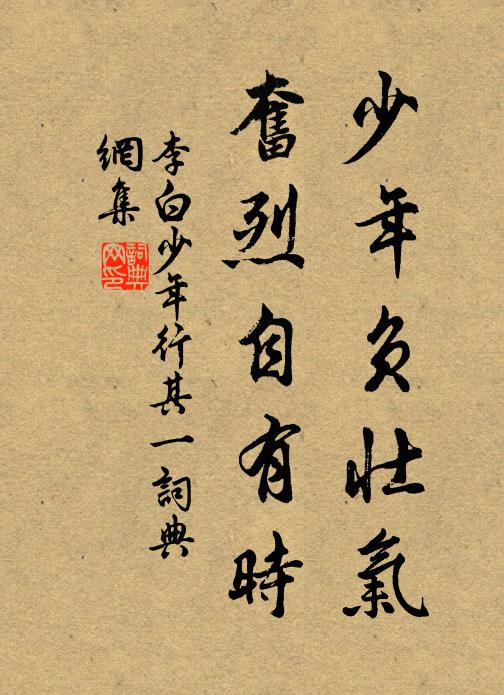 少年负壮氣
奮烈自有時
李白少年行其一詞典
網集
詞典网印